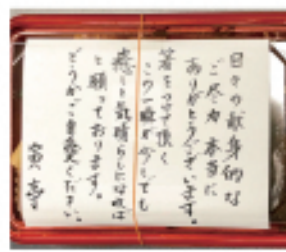 日々の献身的な
ご尽力 本当に
ありがとうございます。
箸をつけて頂く
この一瞬が少しでも
癒しと気晴らしになれば
と願っております。
どうかご自愛ください。